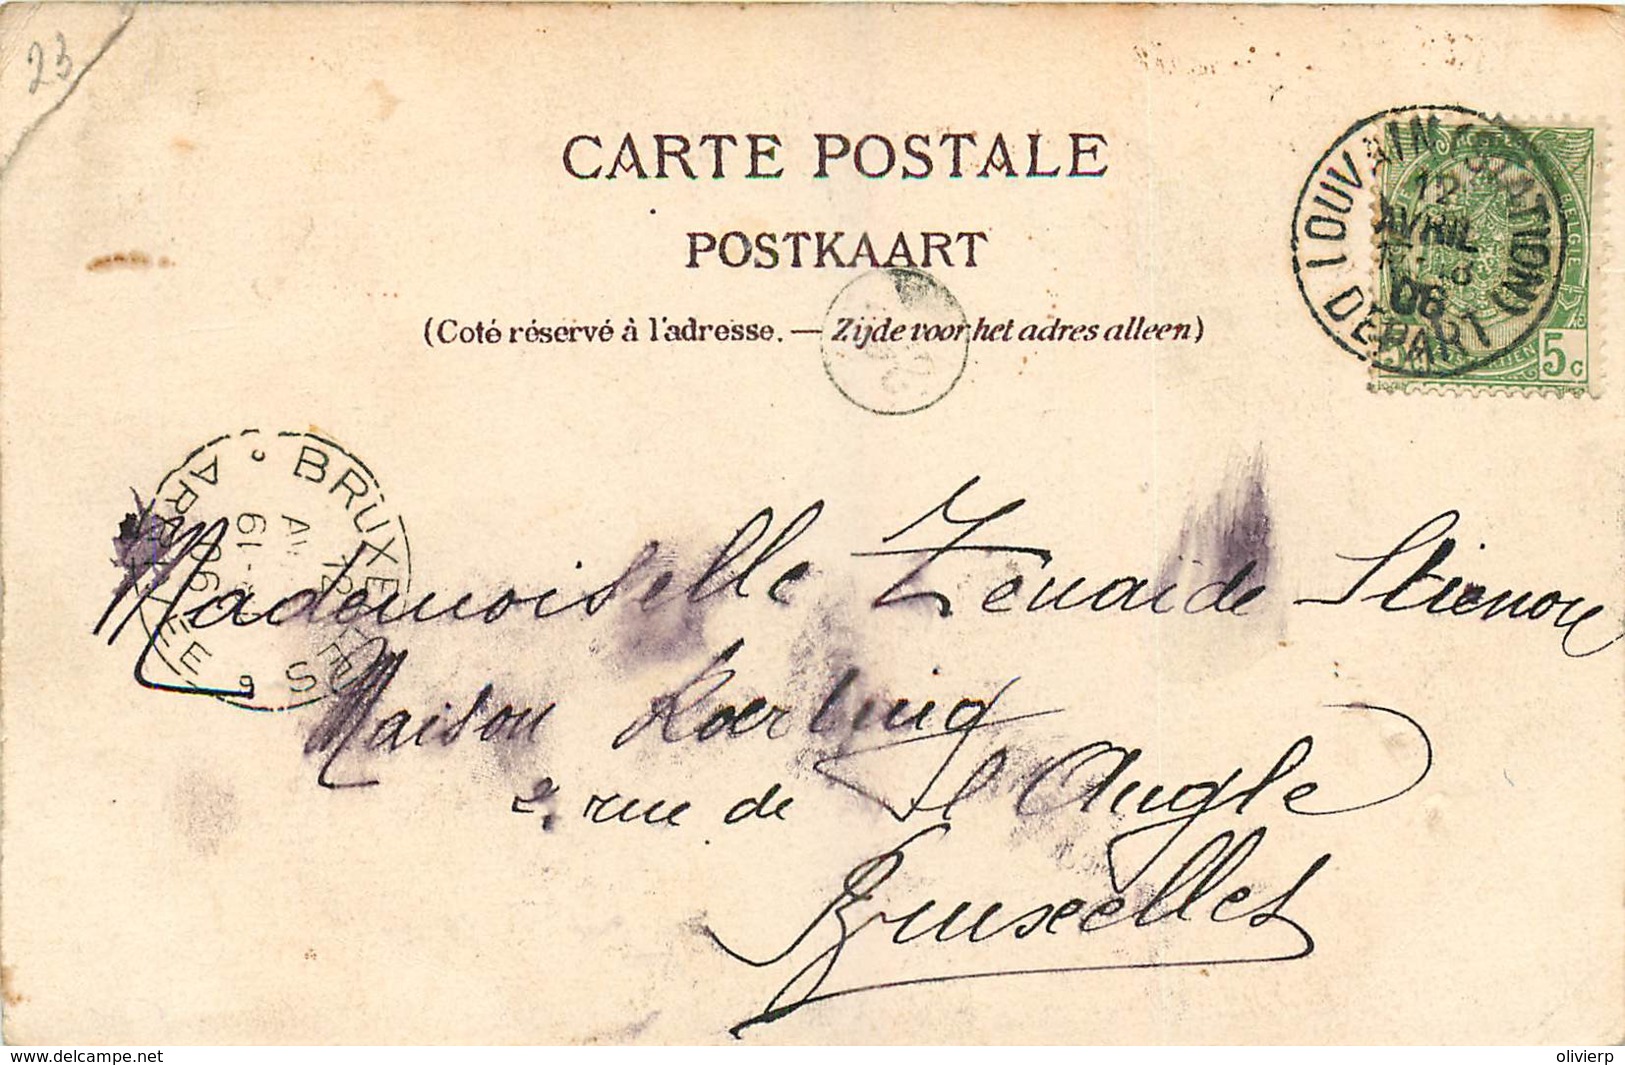 23
CARTE POSTALE
POSTKAART
(Coté réservé à l'adresse. — Zijde voor het adres alleen)
LOUVAIN (STATION)
DEPART
12
AVRIL
06
BELGIE
5c
BRUXELLES
ARRIVÉE
12
06
19
6
Mademoiselle Zenaide Stienon
Maison
2, rue de l'Angle
Bruxelles
www.delcampe.net
olivierp